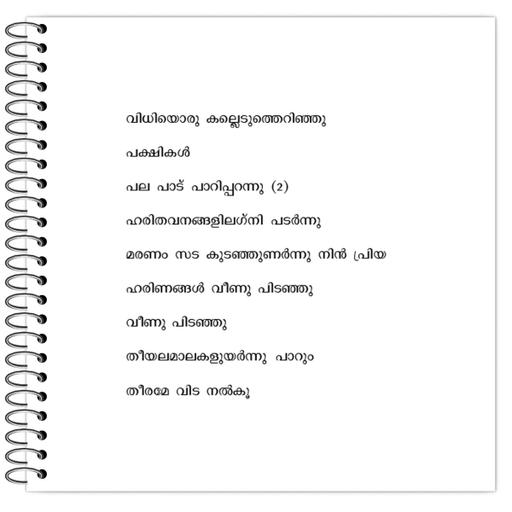 വിധിയൊരു കല്ലെടുത്തെറിഞ്ഞു
പക്ഷികൾ
പല പാട് പാറിപ്പറന്നു (2)
ഹരിതവനങ്ങളിലഗ്നി പടർന്നു
മരണം സട കുടഞ്ഞുണർന്നു നിൻ പ്രിയ
ഹരിണങ്ങൾ വീണു പിടഞ്ഞു
വീണു പിടഞ്ഞു
തീയലമാലകളുയർന്നു പാറും
തീരമേ വിട നൽകൂ